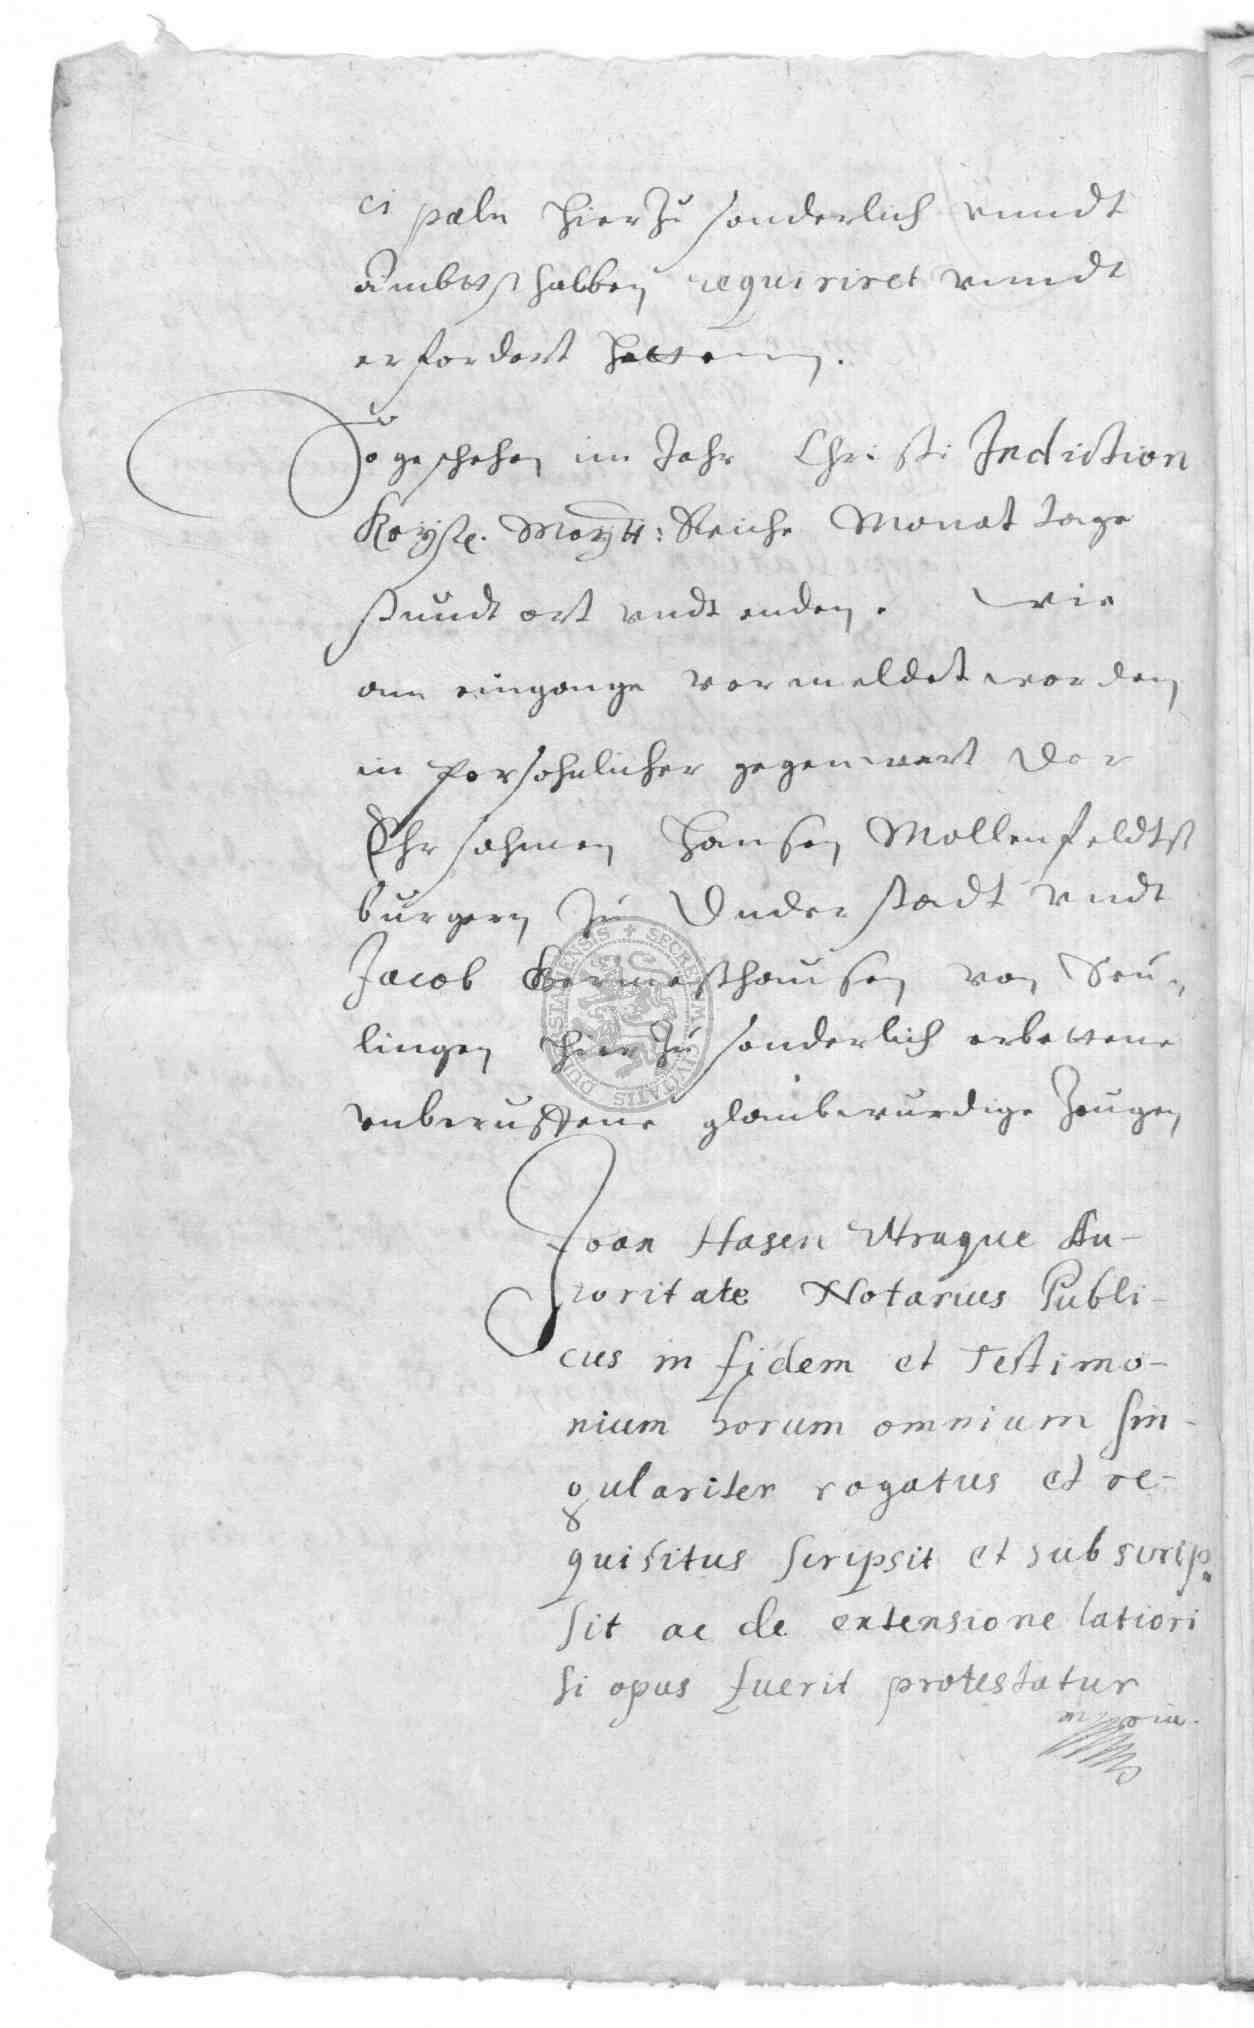 cipaln hierzu sonderlich unndt
ambtshalben requiriret unndt
erfordert hettenn.
So geschehen im Jahr Christi Indiction
Keyße. Maytt: Reiche Monat tage
stundt ort undt enden. wie
am eingange vermeldet worden
in persohnlicher gegenwert der
Ehrsahmen Hansen Mollenfeldtß
burgern zu Duderstadt undt
Jacob Germeßhausen von Seu-
lingen hierzu sonderlich erbettene
unberuffene glaubwurdige Zeugen
Joan Hasen Utraque Au-
toritate Notarius Publi-
cus in fidem et Testimo-
nium horum omnium sin-
gulariter rogatus et re-
quisitus scripsit et subscrip-
sit ac de extensione latiori
si opus fuerit protestatur
SECRETUM CIVITATIS DUDERSTADENSIS